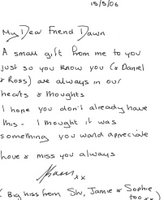 15/5/06
My Dear Friend Dawn
A small gift from me to you
just so you know you (& Daniel
& Ross) are always in our
hearts & thoughts
I hope you don't already have
this - I thought it was
something you would appreciate
Love & miss you always
xx
(Big kiss from Shv, Jamie & Sophie
too)